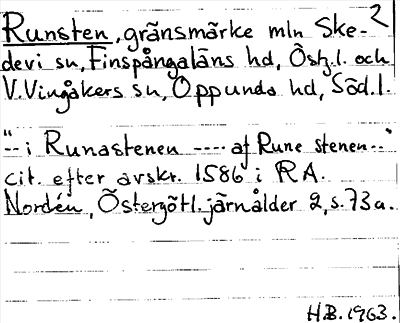 Runsten, gränsmärke mln Ske-2
devi sn, Finspångaläns hd, Östg.l. och
V.Vingåkers sn, Oppunda hd, Söd.l.
"-- i Runastenen ---- af Rune stenen--"
cit. efter avskr. 1586 i RA.
Nordén, Östergötl. järnålder 2, s. 73 a.
H.B. 1963.